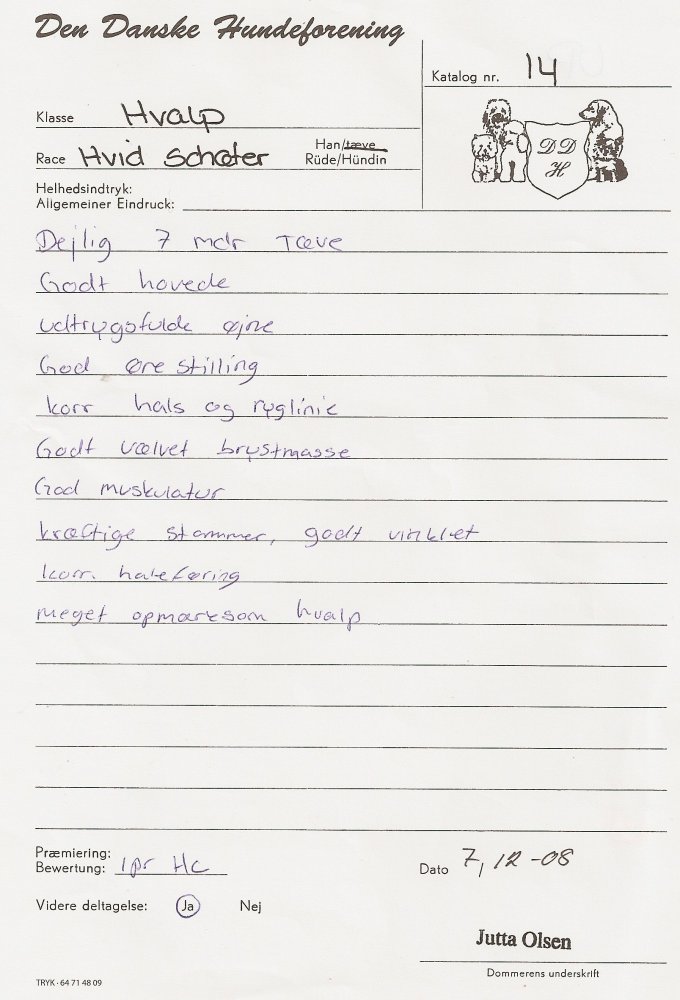 Den Danske Hundeforening
Katalog nr. 14
Klasse Hvalp
Race Hvid Schæfer Han/tæve
Rüde/Hündin
DD
H
Helhedsindtryk:
Allgemeiner Eindruck:
Dejlig 7 mdr Tæve
Godt hovede
udtrygsfulde øjne
God øre stilling
korr hals og ryglinie
Godt vælvet brystmasse
God muskulatur
kræftige stammer, godt vinklet
korr. haleføring
meget opmærksom hvalp
Præmiering:
Bewertung: 1pr Hc
Dato 7, 12 -08
Videre deltagelse: Ja Nej
Jutta Olsen
Dommerens underskrift
TRYK · 64 71 48 09